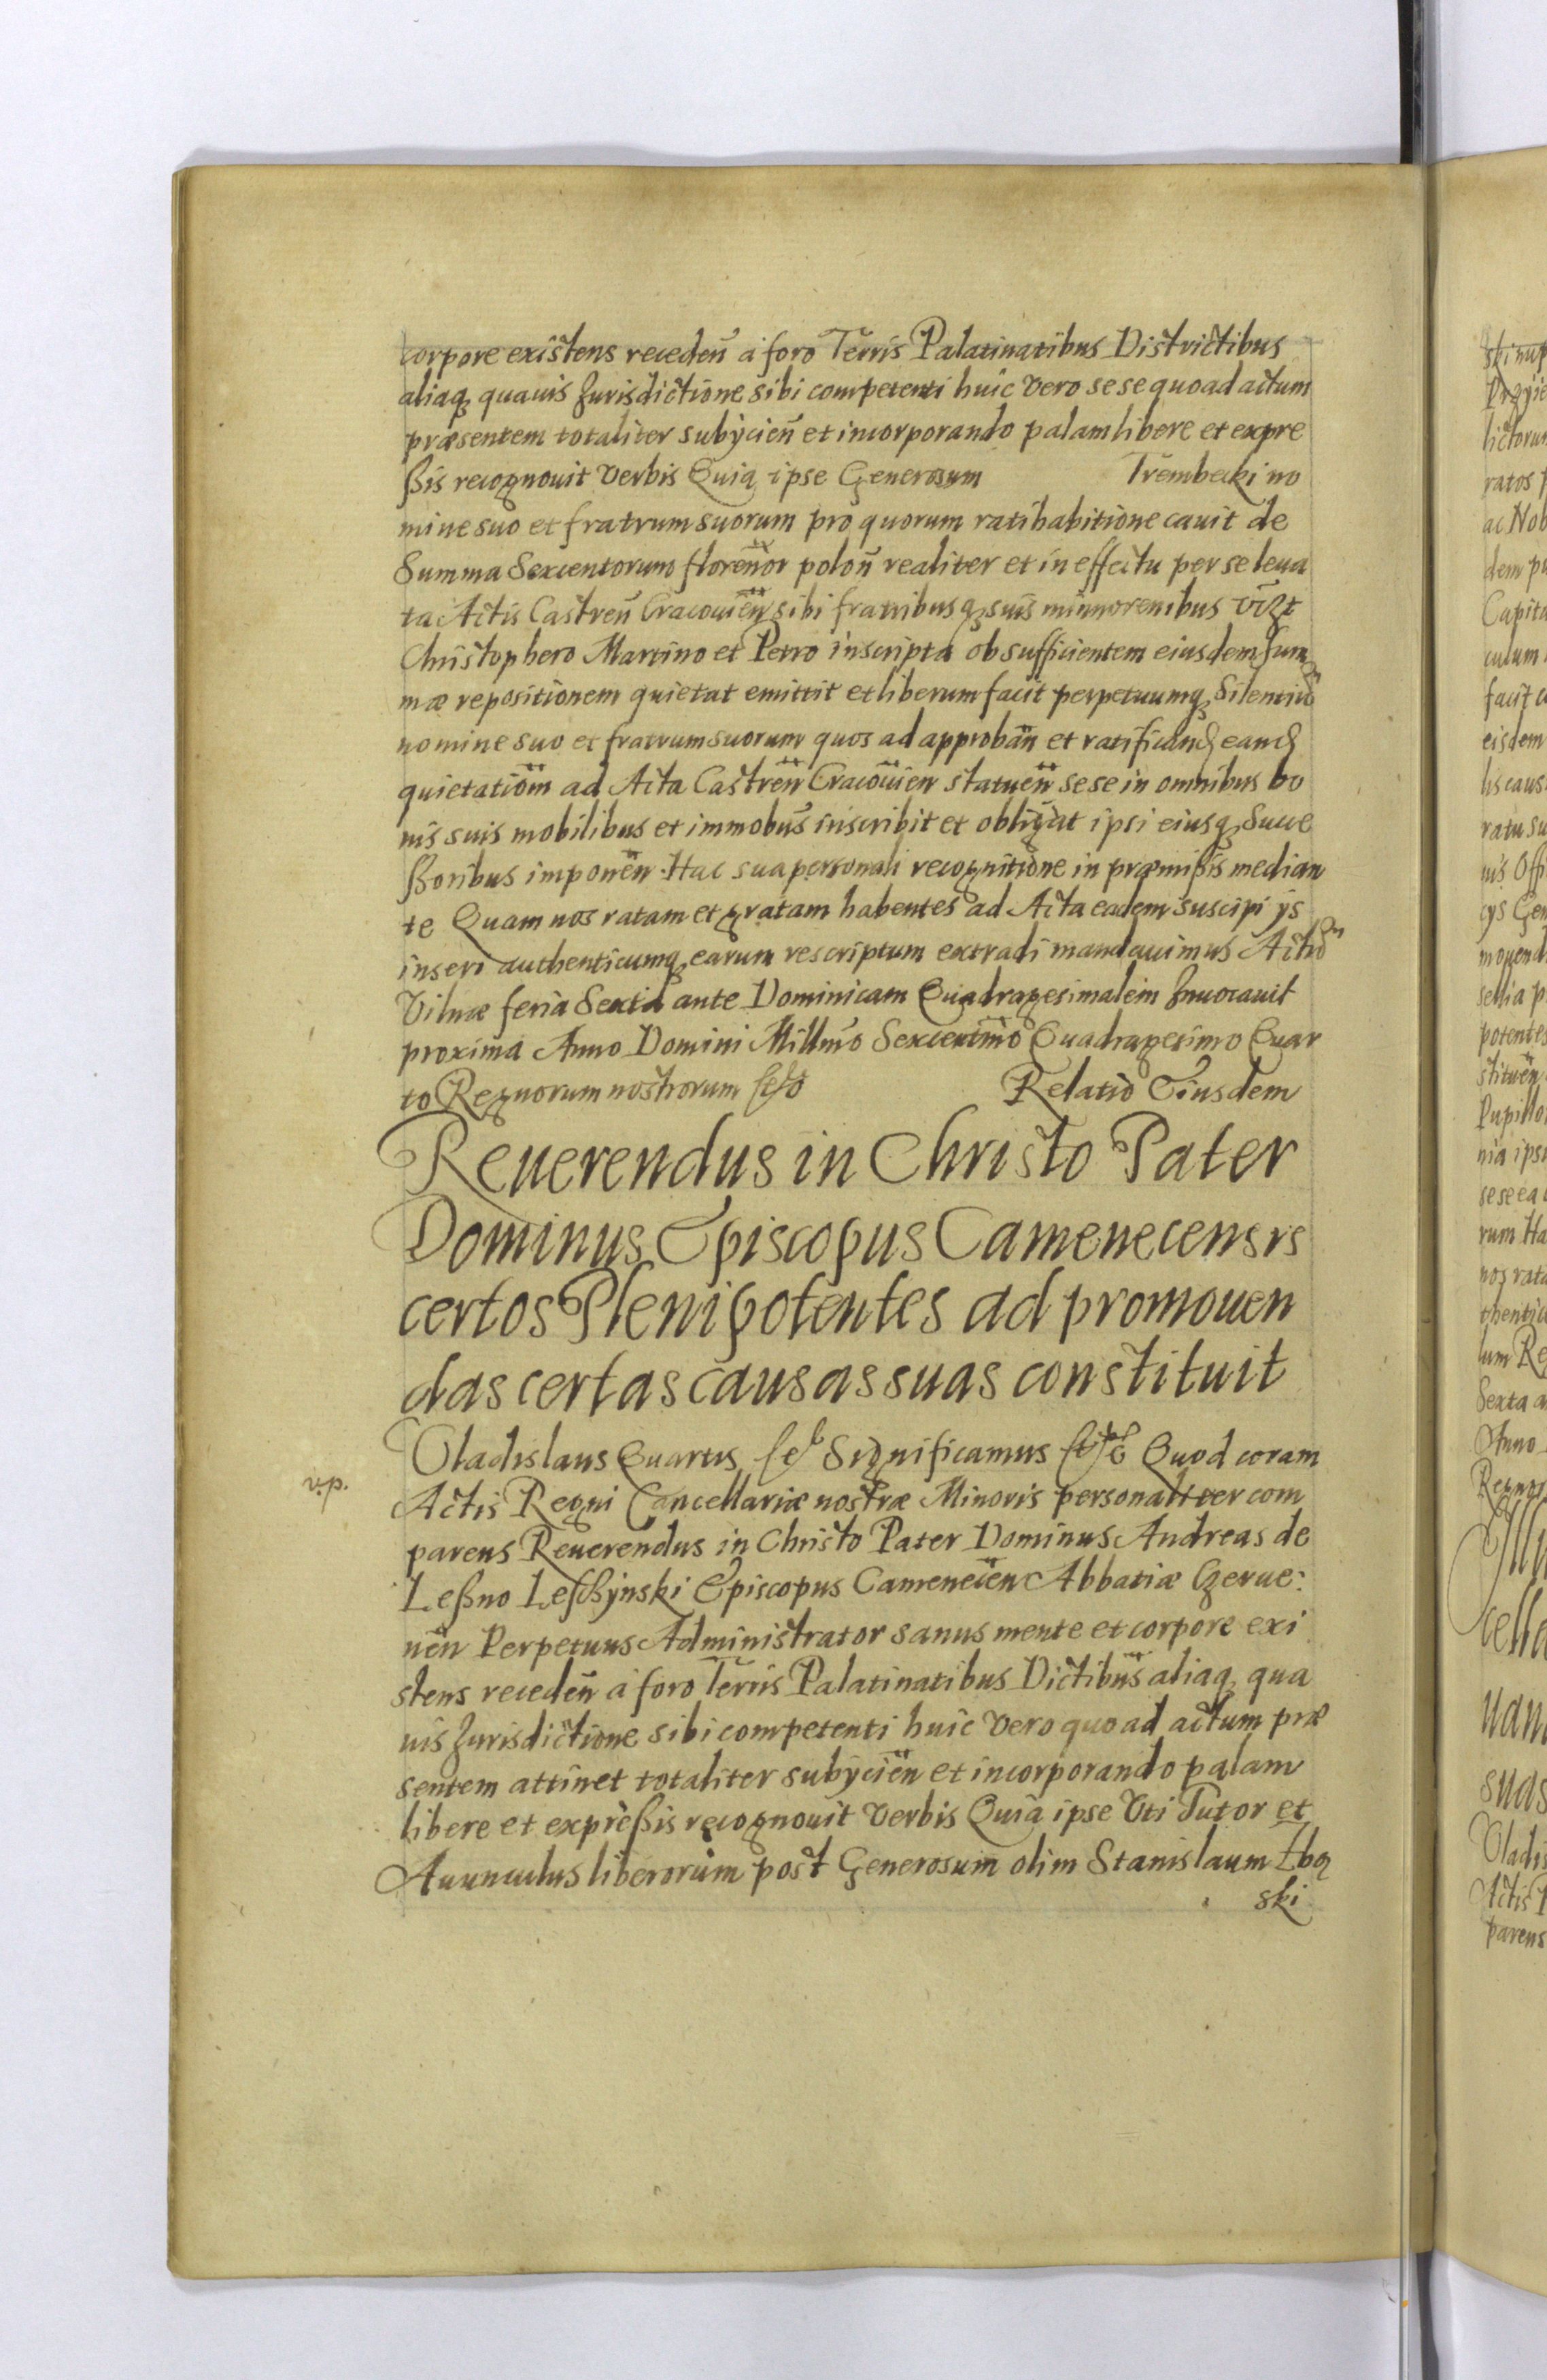 corpore existens recedeñ a foro Terris Palatinatibus Districtibus
aliaq quauis Jurisdictione sibi competenti huic vero sese quoad actum
præsentem totaliter subycieñ et incorporando palam libere et expre
ßis recognouit verbis Quia ipse Generosum Trembecki no
mine suo et fratrum suorum pro quorum ratihabitione cauit de
Summa Sexcentorum florenor poloñ realiter et in effectu per se leua
ta Actis Castreñ Cracouień sibi fratribusq suis minorenibus vizt
Christophero Martino et Petro inscripta ob sufficientem eiusdem sum
mæ repositionem quietat emittit et liberum facit perpetuumq Silentiu
nomine suo et fratrum suorum quos ad approbañ et ratificand eand
quietatiom ad Acta Castreñ Cracouien statueñ sese in omnibus bo
nis suis mobilibus et immobus inscribit et obligat ipsi eiusq Succe
ßoribus imponeñ. Hac sua personali recognitione in præmißis median
te Quam nos ratam et gratam habentes ad Acta eadem suscipi ys
inseri authenticumq earum rescriptum extradi mandauimus Actu
Vilnæ feria Sexta ante Dominicam Quadragesimalem Inuocauit
proxima Anno Domini Millmo Sexcentmo Quadragesimo Quar
to Regnorum nostrorum Relatio Eiusdem
Reuerendus in Christo Pater
Dominus Episcopus Camenecensis
certos Plenipotentes ad promouen
das certas causas suas constituit
Vladislaus Quartus Significamus Quod coram
Actis Regni Cancellariæ nostræ Minoris personaliter com
parens Reuerendus in Christo Pater Dominus Andreas de
Leßno Leszczynski Episcopus Camenecen Abbatiæ Czerue:
nen Perpetuus Administrator sanus mente et corpore exi
stens recedeñ a foro Terris Palatinatibus Dictibus aliaq qua
uis Jurisdictione sibi competenti huic vero quo ad actum præ
sentem attinet totaliter subycień et incorporando palam
libere et expreßis recognouit verbis Quia ipse Vti Tutor et
Auunculus liberorum post Generosum olim Stanislaum Zbo
ski